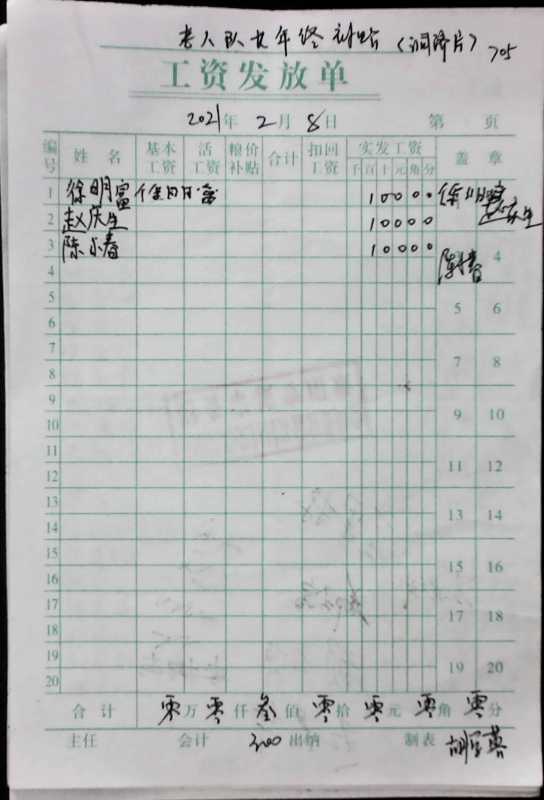 老人队长年终补贴（洞降片）705
工资发放单
2021年 2月 8日 第 页
编号 姓名 基本工资 活工资 粮价补贴 合计 扣回工资 实发工资 盖章
千百十元角分
1 徐明富 10000
2 赵庆生 10000 赵庆生
3 陈小春 10000
4 陈小春 4
5 5 6
6
7 7 8
8
9 9 10
10
11 11 12
12
13 13 14
14
15 15 16
16
17 17 18
18
19 19 20
20
合计 零万零仟叁佰零拾零元零角零分
主任 会计 300 出纳 制表